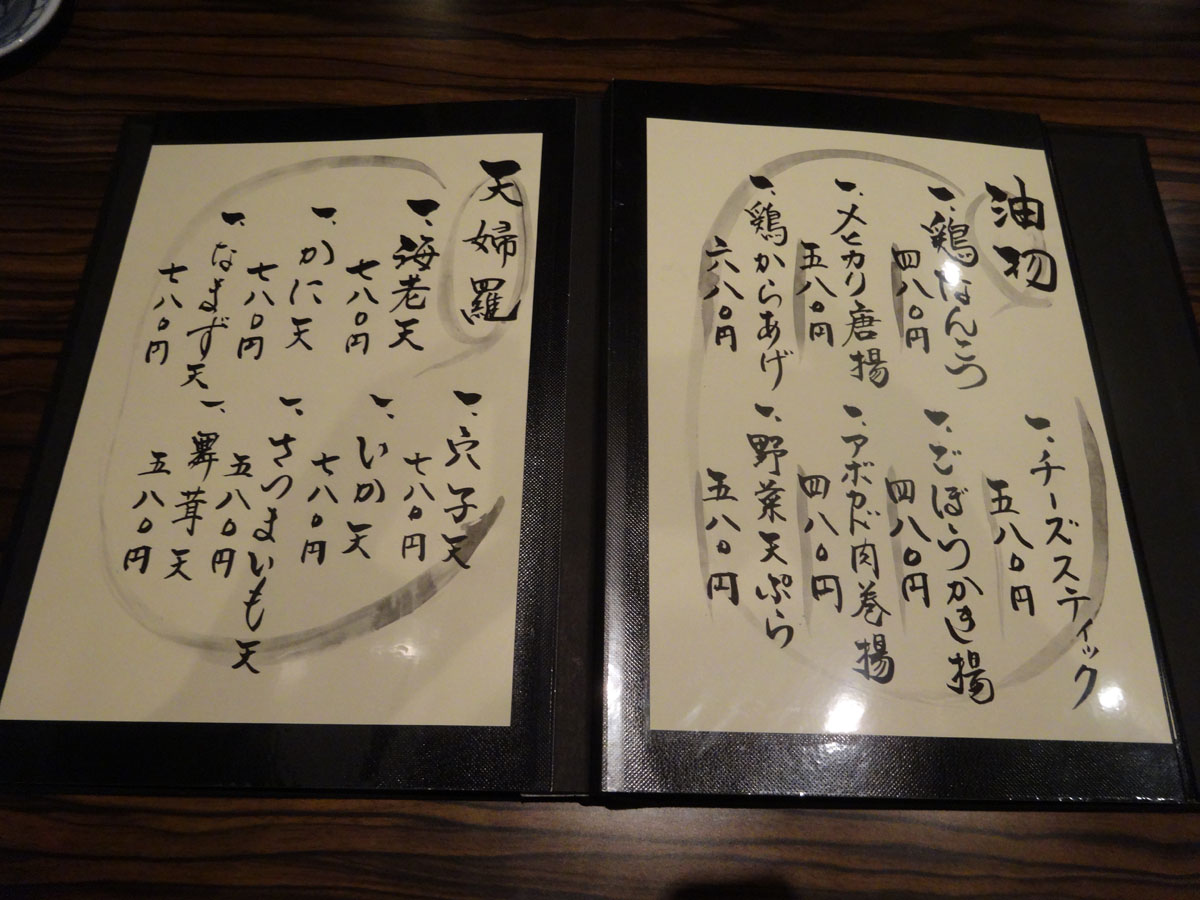 油物
一、鶏なんこつ
四八〇円
一、メヒカリ唐揚
五八〇円
一、鶏からあげ
六八〇円
一、チーズスティック
五八〇円
一、ごぼうかき揚
四八〇円
一、アボカド肉巻揚
四八〇円
一、野菜天ぷら
五八〇円
天婦羅
一、海老天
七八〇円
一、かに天
七八〇円
一、なまず天
七八〇円
一、穴子天
七八〇円
一、いか天
七八〇円
一、さつまいも天
五八〇円
一、舞茸天
五八〇円